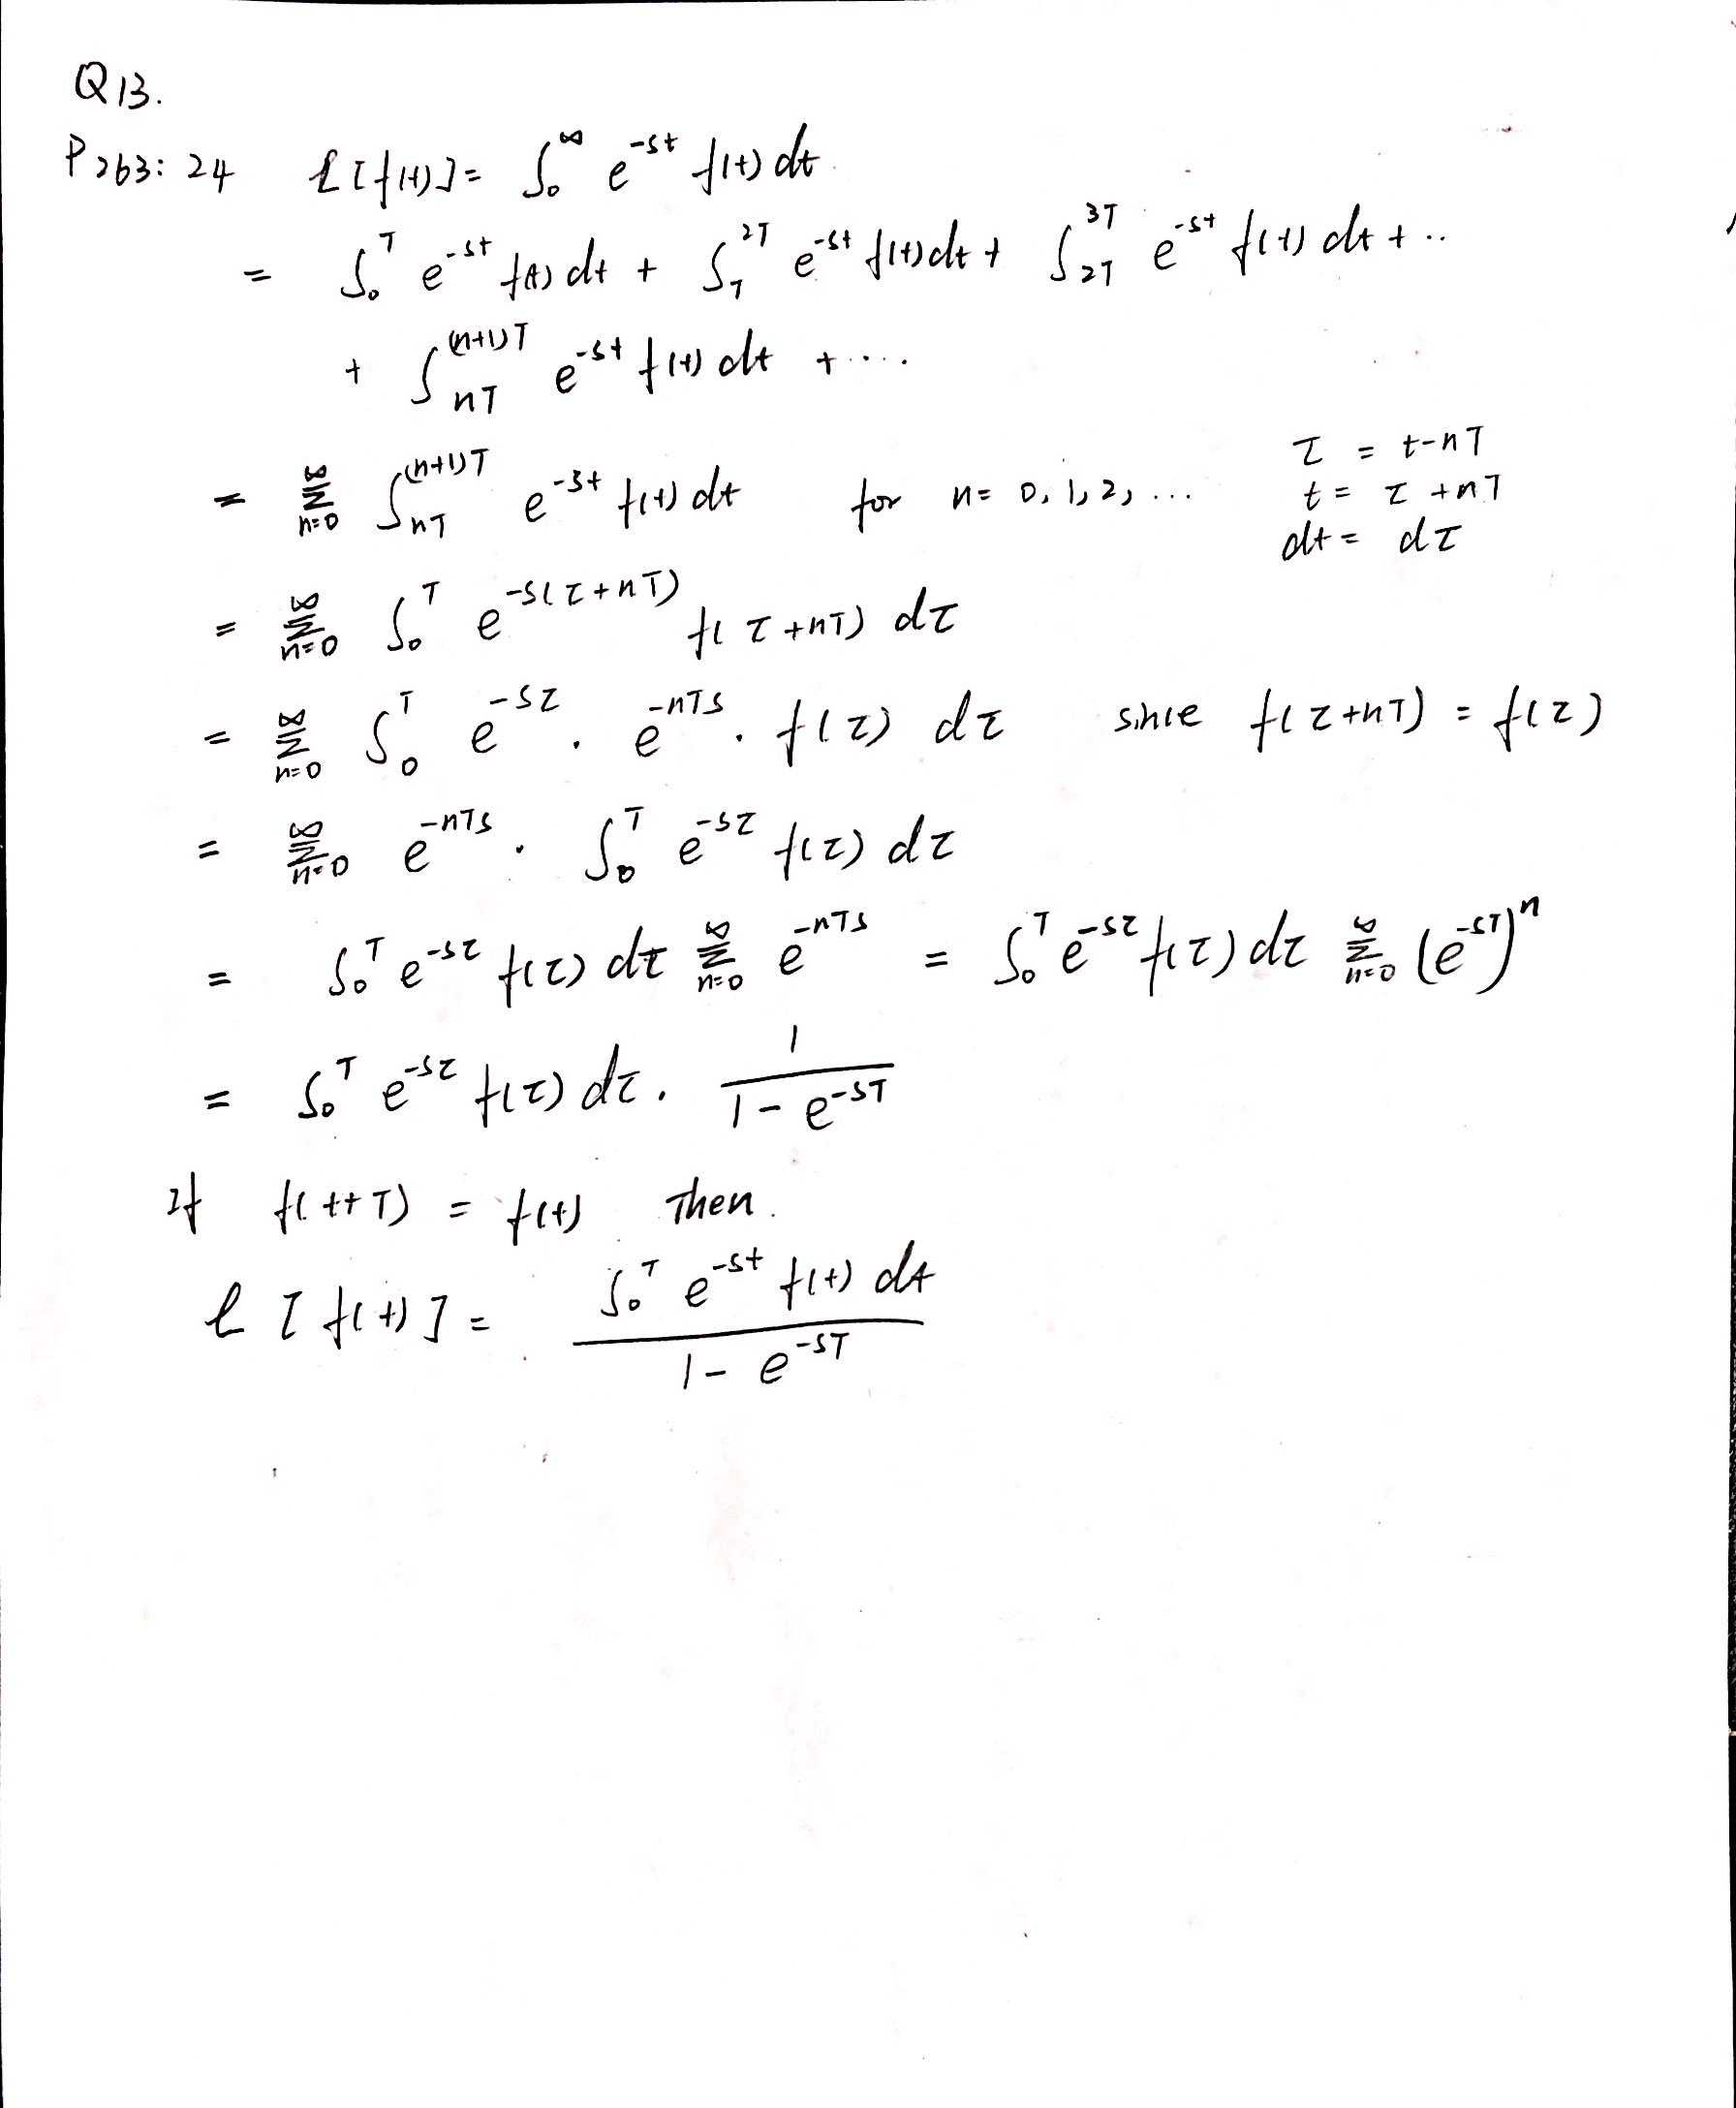 Q13.
P263: 24 ℒ[f(t)] = ∫₀^∞ e^{-st} f(t) dt
= ∫₀^T e^{-st} f(t) dt + ∫_T^{2T} e^{-st} f(t) dt + ∫_{2T}^{3T} e^{-st} f(t) dt + ..
+ ∫_{nT}^{(n+1)T} e^{-st} f(t) dt + ....
= ∑_{n=0}^∞ ∫_{nT}^{(n+1)T} e^{-st} f(t) dt for n = 0, 1, 2, ...
τ = t-nT
t = τ + nT
dt = dτ
= ∑_{n=0}^∞ ∫₀^T e^{-s(τ+nT)} f(τ+nT) dτ
= ∑_{n=0}^∞ ∫₀^T e^{-sτ} · e^{-nTs} · f(τ) dτ since f(τ+nT) = f(τ)
= ∑_{n=0}^∞ e^{-nTs} · ∫₀^T e^{-sτ} f(τ) dτ
= ∫₀^T e^{-sτ} f(τ) dτ ∑_{n=0}^∞ e^{-nTs} = ∫₀^T e^{-sτ} f(τ) dτ ∑_{n=0}^∞ (e^{-sT})^n
= ∫₀^T e^{-sτ} f(τ) dτ · \frac{1}{1 - e^{-sT}}
If f(t+T) = f(t) Then.
ℒ[f(t)] = \frac{∫₀^T e^{-st} f(t) dt}{1 - e^{-sT}}